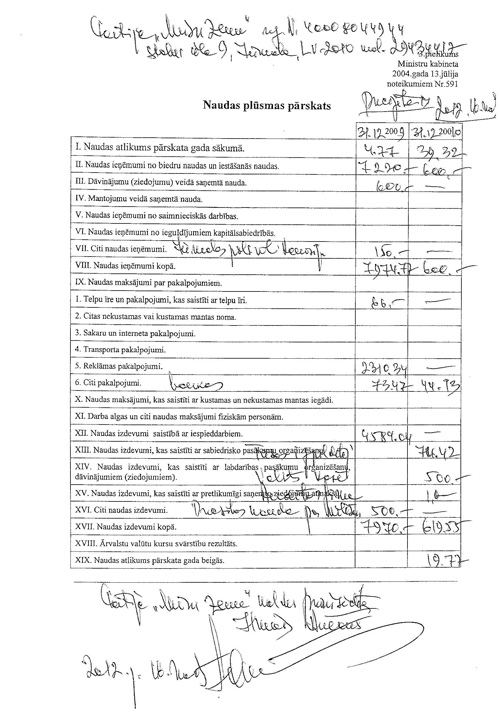 Partija „Mūsu zeme" reģ. N. 40008044944
iela 9, Jūrmala, LV-2010 29434412
3.pielikums
Ministru kabineta
2004.gada 13.jūlija
noteikumiem Nr.591
Naudas plūsmas pārskats
2012.
31.12.2009 31.12.2010
I. Naudas atlikums pārskata gada sākumā. 4.77 39.32
II. Naudas ieņēmumi no biedru naudas un iestāšanās naudas. 7220.- 600.-
III. Dāvinājumu (ziedojumu) veidā saņemtā nauda. 600.- —
IV. Mantojumu veidā saņemtā nauda.
V. Naudas ieņēmumi no saimnieciskās darbības.
VI. Naudas ieņēmumi no ieguldījumiem kapitālsabiedrībās.
VII. Citi naudas ieņēmumi. 150.- —
VIII. Naudas ieņēmumi kopā. 7974.77 600.-
IX. Naudas maksājumi par pakalpojumiem.
1. Telpu īre un pakalpojumi, kas saistīti ar telpu īri. 66.- —
2. Citas nekustamas vai kustamas mantas noma.
3. Sakaru un interneta pakalpojumi.
4. Transporta pakalpojumi.
5. Reklāmas pakalpojumi. 2310.34 —
6. Citi pakalpojumi. bankas 73.47 44.13
X. Naudas maksājumi, kas saistīti ar kustamas un nekustamas mantas iegādi.
XI. Darba algas un citi naudas maksājumi fiziskām personām.
XII. Naudas izdevumi saistībā ar iespieddarbiem. 4589.04 —
XIII. Naudas izdevumi, kas saistīti ar sabiedrisko pasākumu organizēšanu. .42
XIV. Naudas izdevumi, kas saistīti ar labdarības pasākumu organizēšanu,
dāvinājumiem (ziedojumiem). 500.-
XV. Naudas izdevumi, kas saistīti ar pretlikumīgi saņemto ziedojumu
XVI. Citi naudas izdevumi. 500.- —
XVII. Naudas izdevumi kopā. 7970.- 619.55
XVIII. Ārvalstu valūtu kursu svārstību rezultāts.
XIX. Naudas atlikums pārskata gada beigās. 19.77
Partija „Mūsu zeme" valdes
2012.